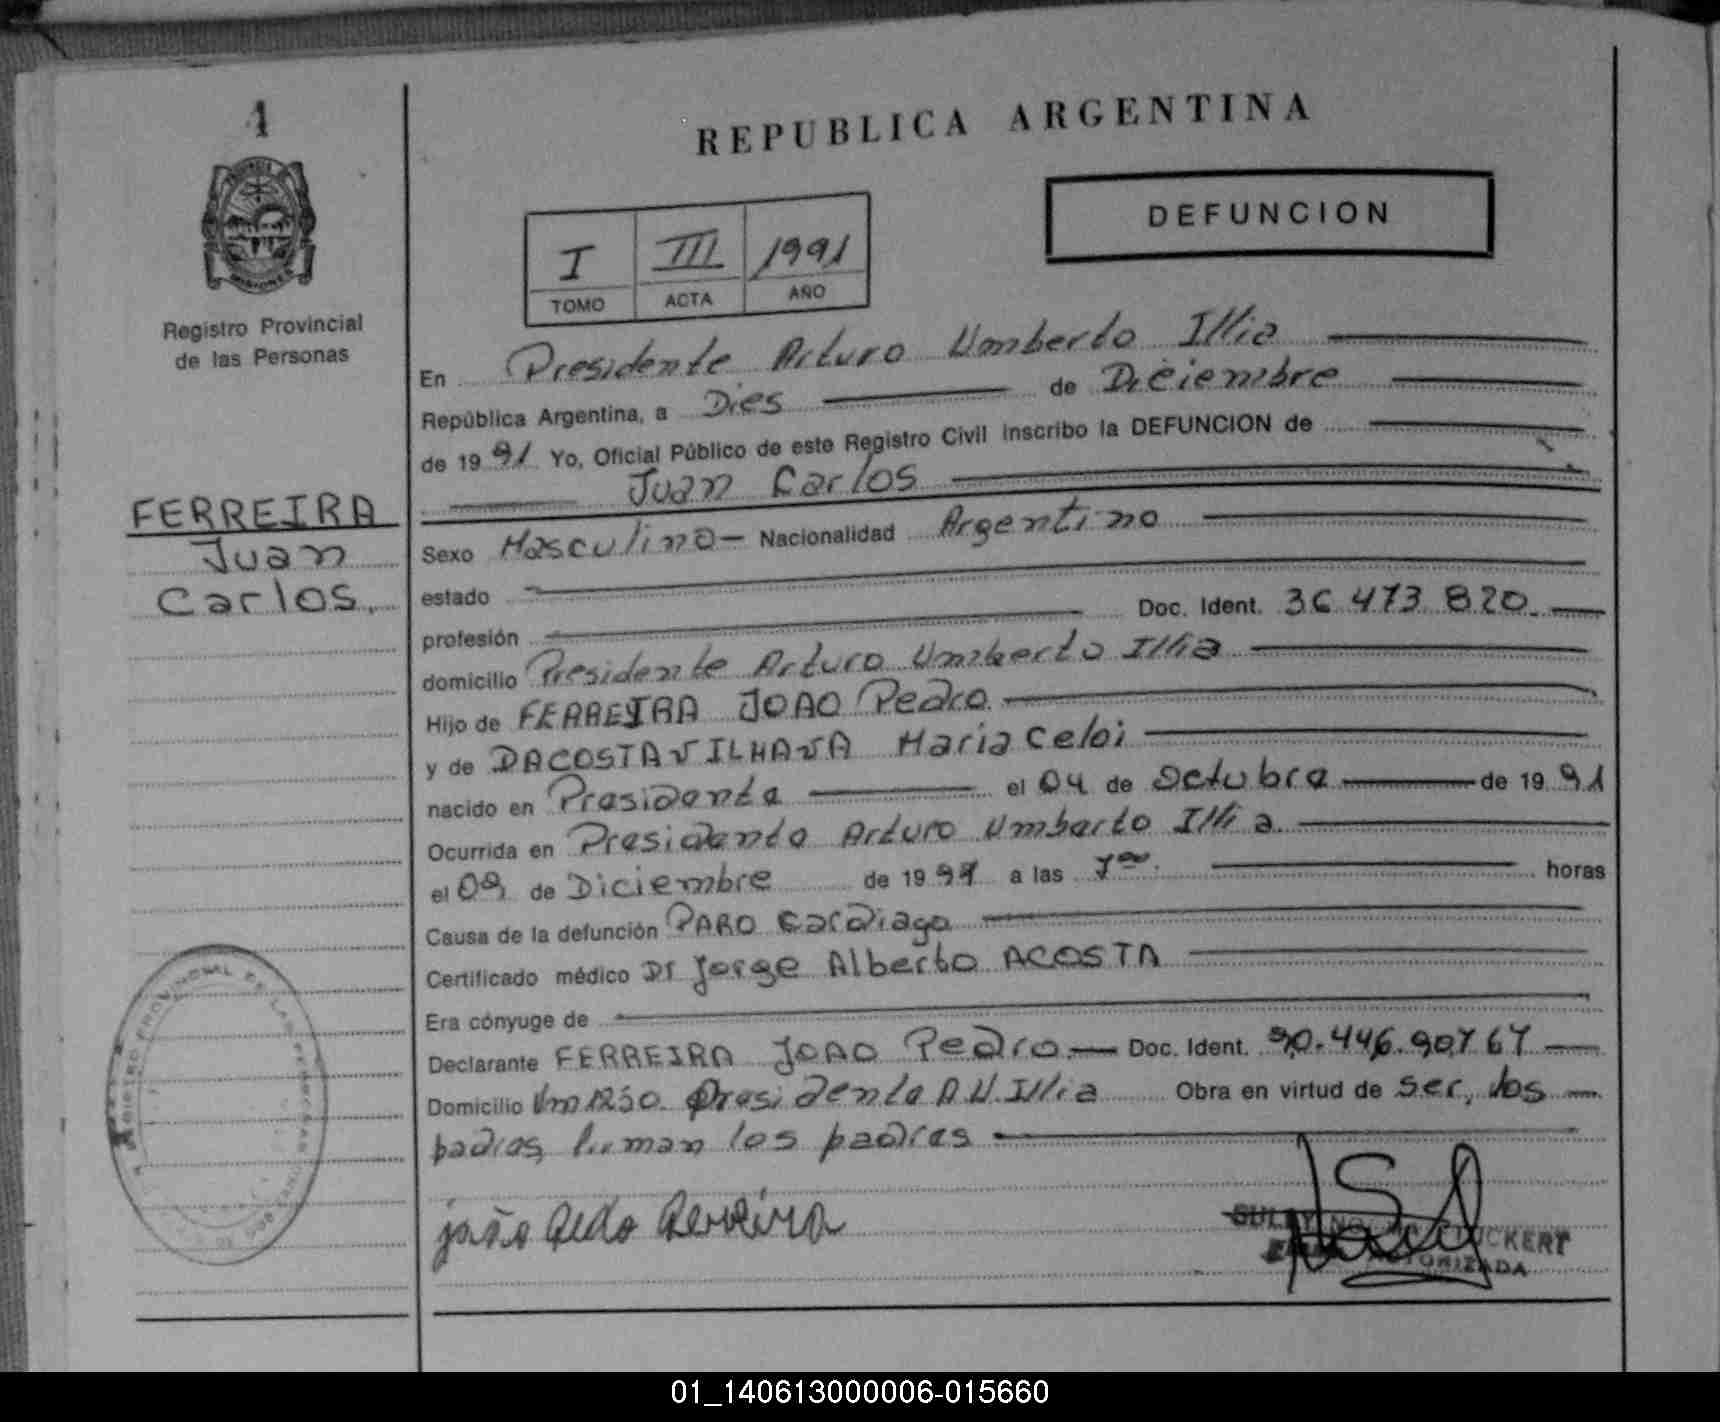 1
REPUBLICA ARGENTINA
DEFUNCION
I III 1991
TOMO ACTA AÑO
Registro Provincial
de las Personas
FERREIRA
Juan
Carlos.
En Presidente Arturo Umberto Illia
República Argentina, a Dies de Diciembre
de 19 91 Yo, Oficial Público de este Registro Civil inscribo la DEFUNCION de
Juan Carlos
Sexo Masculino - Nacionalidad Argentino
estado
profesión Doc. Ident. 36 473 820
domicilio Presidente Arturo Umberto Illia
Hijo de FERREIRA JOAO Pedro
y de DACOSTA VILHAVA Maria Celoi
nacido en Presidente el 04 de Octubre de 19 91
Ocurrida en Presidente Arturo Umberto Illia
el 09 de Diciembre de 19 91 a las 7 horas
Causa de la defunción PARO Cardiago
Certificado médico Dr Jorge Alberto ACOSTA
Era cónyuge de
Declarante FERREIRA JOAO Pedro - Doc. Ident.
Domicilio Presidente A U. Illia Obra en virtud de ser, los
padres, los padres
joão Pedo Ferreira
STUCKERT
AUTORIZADA
REGISTRO PROVINCIAL DE LAS PERSONAS
MISIONES
01_140613000006-015660